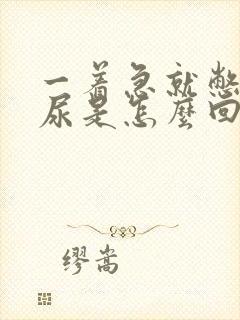 一着急就憋
尿是怎麼回
缪嵩